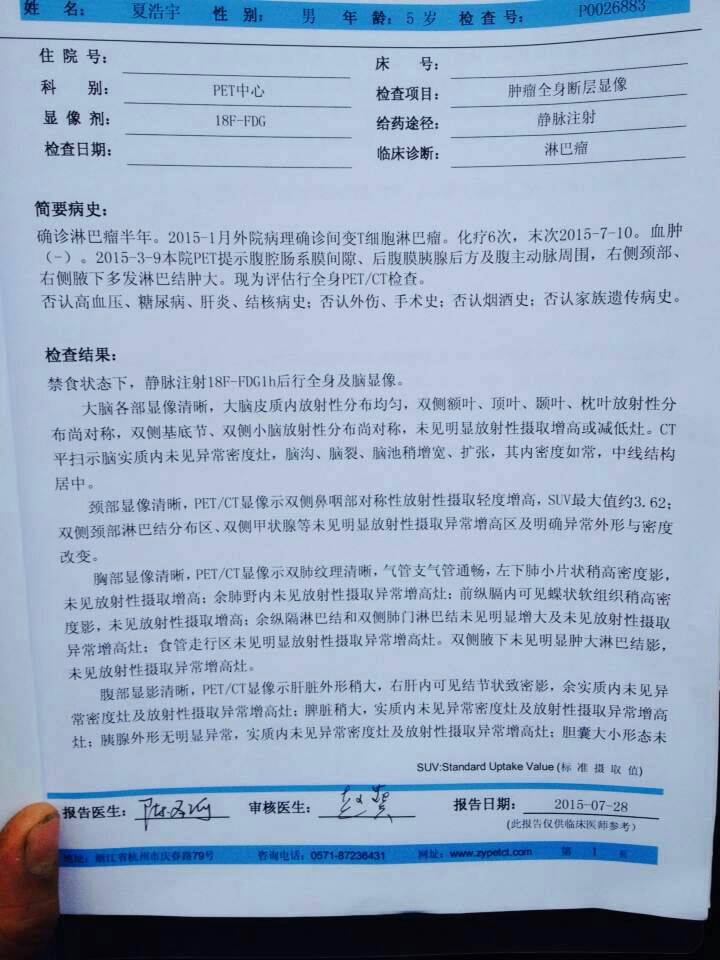 姓 名: 夏浩宇 性 别: 男 年 龄: 5 岁 检 查 号: P0026883
住 院 号: 床 号:
科 别: PET中心 检查项目: 肿瘤全身断层显像
显 像 剂: 18F-FDG 给药途径: 静脉注射
检查日期: 临床诊断: 淋巴瘤
简要病史:
确诊淋巴瘤半年。2015-1月外院病理确诊间变T细胞淋巴瘤。化疗6次，末次2015-7-10。血肿
（-）。2015-3-9本院PET提示腹腔肠系膜间隙、后腹膜胰腺后方及腹主动脉周围，右侧颈部、
右侧腋下多发淋巴结肿大。现为评估行全身PET/CT检查。
否认高血压、糖尿病、肝炎、结核病史；否认外伤、手术史；否认烟酒史；否认家族遗传病史。
检查结果:
禁食状态下，静脉注射18F-FDG1h后行全身及脑显像。
大脑各部显像清晰，大脑皮质内放射性分布均匀，双侧额叶、顶叶、颞叶、枕叶放射性分
布尚对称，双侧基底节、双侧小脑放射性分布尚对称，未见明显放射性摄取增高或减低灶。CT
平扫示脑实质内未见异常密度灶，脑沟、脑裂、脑池稍增宽、扩张，其内密度如常，中线结构
居中。
颈部显像清晰，PET/CT显像示双侧鼻咽部对称性放射性摄取轻度增高，SUV最大值约3.62；
双侧颈部淋巴结分布区、双侧甲状腺等未见明显放射性摄取异常增高区及明确异常外形与密度
改变。
胸部显像清晰，PET/CT显像示双肺纹理清晰，气管支气管通畅，左下肺小片状稍高密度影，
未见放射性摄取增高；余肺野内未见放射性摄取异常增高灶；前纵膈内可见蝶状软组织稍高密
度影，未见放射性摄取增高；余纵隔淋巴结和双侧肺门淋巴结未见明显增大及未见放射性摄取
异常增高灶；食管走行区未见明显放射性摄取异常增高灶。双侧腋下未见明显肿大淋巴结影，
未见放射性摄取异常增高灶。
腹部显影清晰，PET/CT显像示肝脏外形稍大，右肝内可见结节状致密影，余实质内未见异
常密度灶及放射性摄取异常增高灶；脾脏稍大，实质内未见异常密度灶及放射性摄取异常增高
灶；胰腺外形无明显异常，实质内未见异常密度灶及放射性摄取异常增高灶；胆囊大小形态未
SUV:Standard Uptake Value (标 准 摄 取 值)
报告医生: 审核医生: 报告日期: 2015-07-28
(此报告仅供临床医师参考)
地址: 浙江省杭州市庆春路79号 咨询电话: 0571-87236431 网址: www.zypetct.com 第 1 页